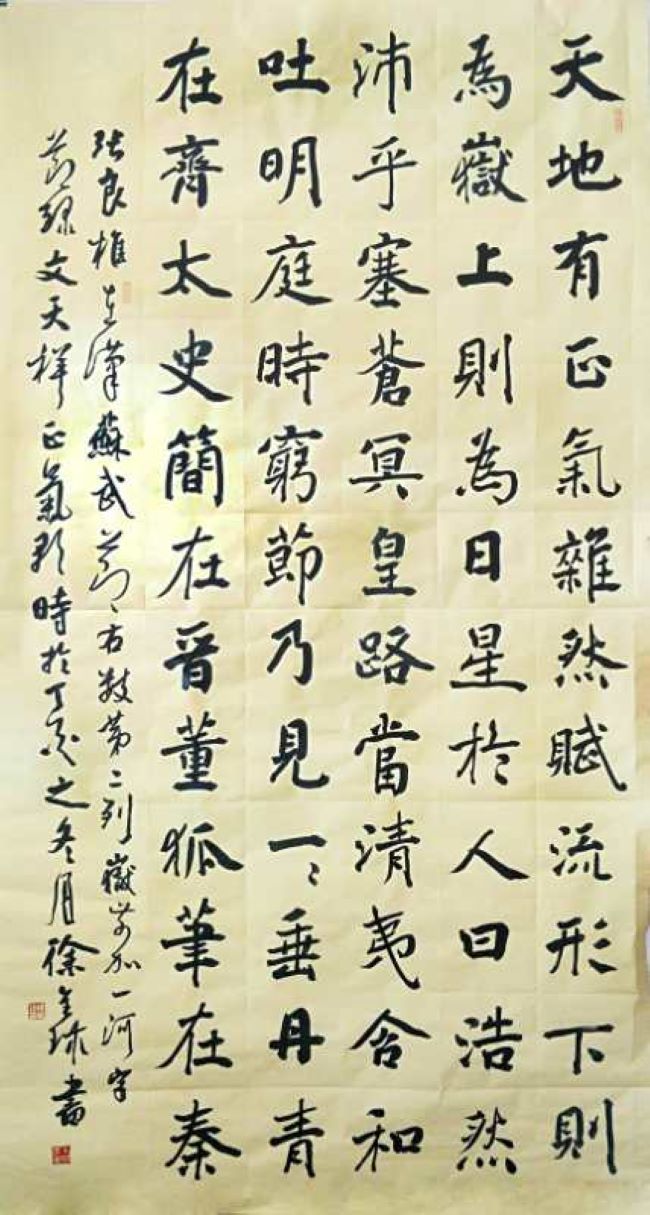 天地有正氣雜然賦流形下則
為嶽上則為日星於人曰浩然
沛乎塞蒼冥皇路當清夷含和
吐明庭時窮節乃見一〻垂丹青
在齊太史簡在晉董狐筆在秦
張良椎在漢蘇武節、右數第二列嶽前加一河字
節録文天祥正氣歌時於丁亥之冬月徐球書